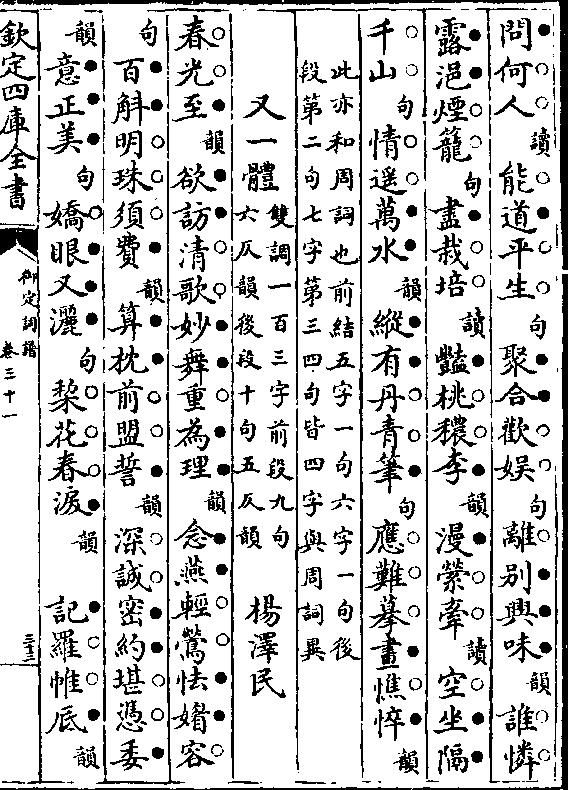 問何人讀能道平生句聚合歡娛句離別興味韻誰憐
露浥煙籠句盡栽培讀豔桃穠李韻漫縈牽讀空坐隔
千山句情遥萬水韻縱有丹青筆句應難摹畫憔悴韻
此亦和周詞也前結五字一句六字一句後
段第二句七字第三四句皆四字與周詞異
又一體雙調一百三字前段九句
六仄韻後段十句五仄韻楊澤民
春光至韻欲訪清歌妙舞重為理韻念燕輕鶯怯媠容
句百斛明珠須費韻算枕前盟誓韻深誠密約堪憑委
韻意正美句嬌眼又灑句棃花春淚韻記羅帷底韻
欽定四庫全書
御定詞譜
卷三十一
三三